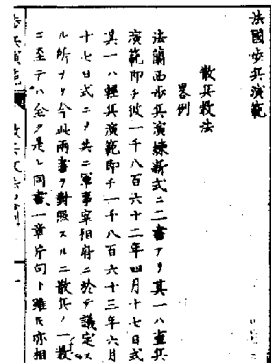 法國歩兵演範
散兵教法
畧例
法蘭西歩兵演練新式ニ二書アリ其一ハ重兵
演範即チ彼一千八百六十二年四月十七日式
其一ハ輕兵演範即チ一千八百六十三年六月
十七日式ニ〆共ニ軍事宰相府ニ於テ議定ス
ル所ナリ今此兩書ヲ對照スルニ散兵ノ一教
ニ至テハ全ク是レ同書一章片句ト雖𪜈亦相